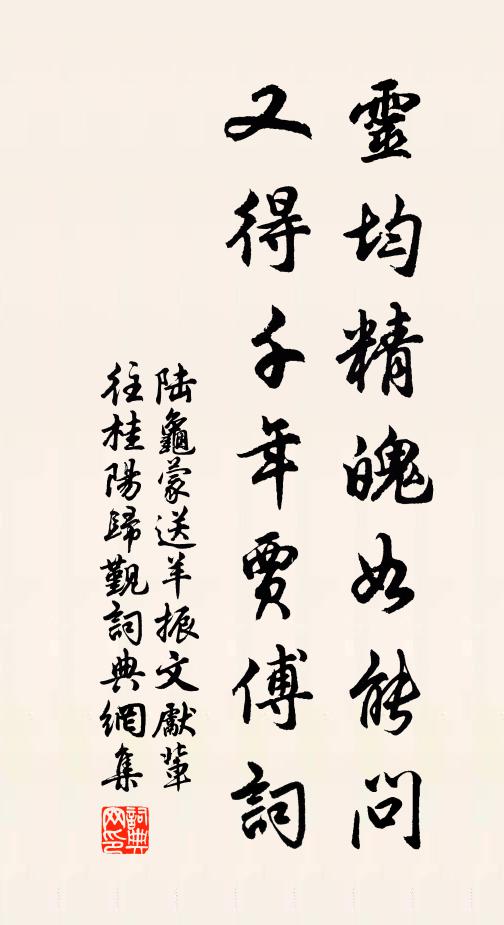 靈均精魄如能問
又得千年賈傅詞
陸龜蒙送羊振文獻輩
往桂陽歸覲詞典網集
詞典網印